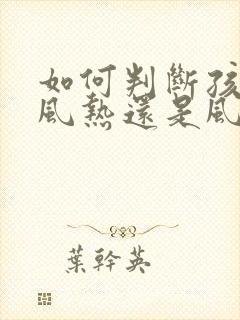 如何判斷孩
風熱還是風
葉幹英